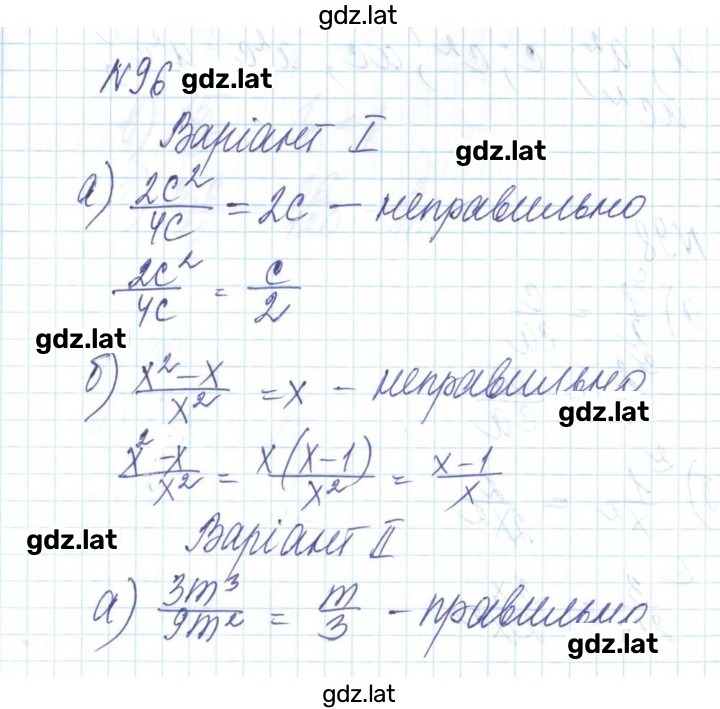 gdz.lat
№96 gdz.lat
Варіант I
gdz.lat
а) 2c²/4c = 2c – неправильно
2c²/4c = c/2
gdz.lat
б) x²-x/x² = x – неправильно
gdz.lat
x²-x/x² = x(x-1)/x² = x-1/x
gdz.lat
Варіант II
а) 3m³/9m² = m/3 – правильно
gdz.lat
gdz.lat